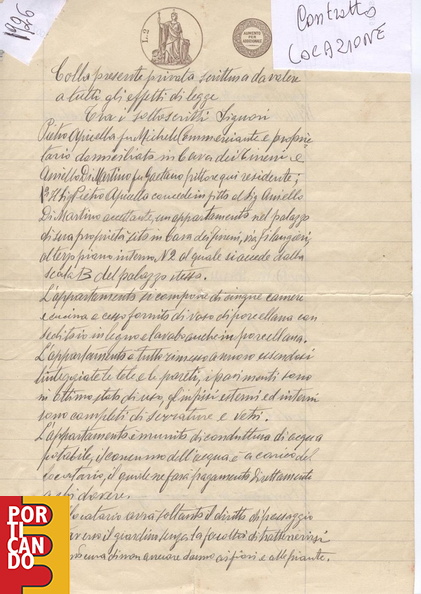 1926
Contratto
LOCAZIONE
L. 2
Colla presente privata scrittura da valere
a tutti gli effetti di legge
Tra i sottoscritti Signori
Pietro Apicella fu Michele Commerciante e proprie
tario domiciliato in Cava dei Tirreni e
Aniello Di Martino fu Gaetano qui residente;
Il Sig Pietro Apicella concede in fitto al Sig Aniello
Di Martino accettante, un appartamento nel palazzo
di sua proprietà sito in Cava dei Tirreni, via Filangieri,
al terzo piano interno N 2 al quale si accede dalla
scala B del palazzo stesso.
L'appartamento si compone di cinque camere
e cucina e cesso fornito di vaso di porcellana con
seditoio in legno e lavabo anche in porcellana.
L'appartamento è tutto rimesso a nuovo essendosi
tinteggiate le tele e le pareti, i pavimenti sono
in ottimo stato di uso, gl'infissi esterni ed interni
sono completi di serrature e vetri.
L'appartamento è munito di conduttura di acqua
potabile, il consumo dell'acqua è a carico del
locatario, il quale ne farà pagamento direttamente
a chi dovere.
locatario avrà soltanto il diritto di passaggio
il giardino senza la facoltà di trattenervisi
di non arrecare danno ai fiori e alle piante.
PORTICANDO